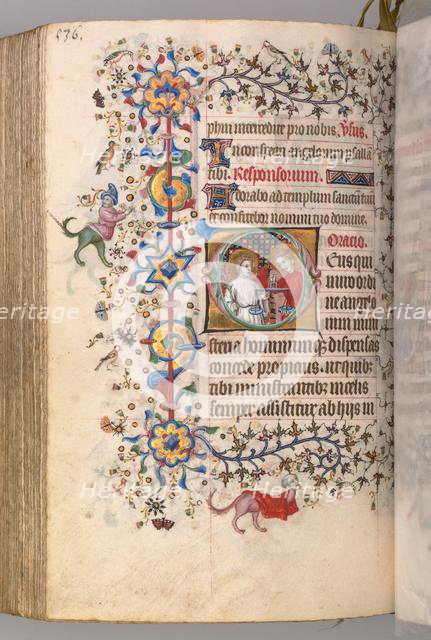 536.
phim intercedite pro nobis. Vsus.
In conspectu angelorum psallā
tibi. Responsorium.
Adorabo ad templum sanctum tuū
et confitebor nomini tuo domine.
Oratio.
Deus qui
miro ordi
ne angelo
rum mini
steria hominumq3 dispensas
concede propicius. ut quib3
tibi ministrantib3 in celis
semper assistitur ab hijs in
Heritage Images
Heritage Images
Heritage Images
Heritage Images